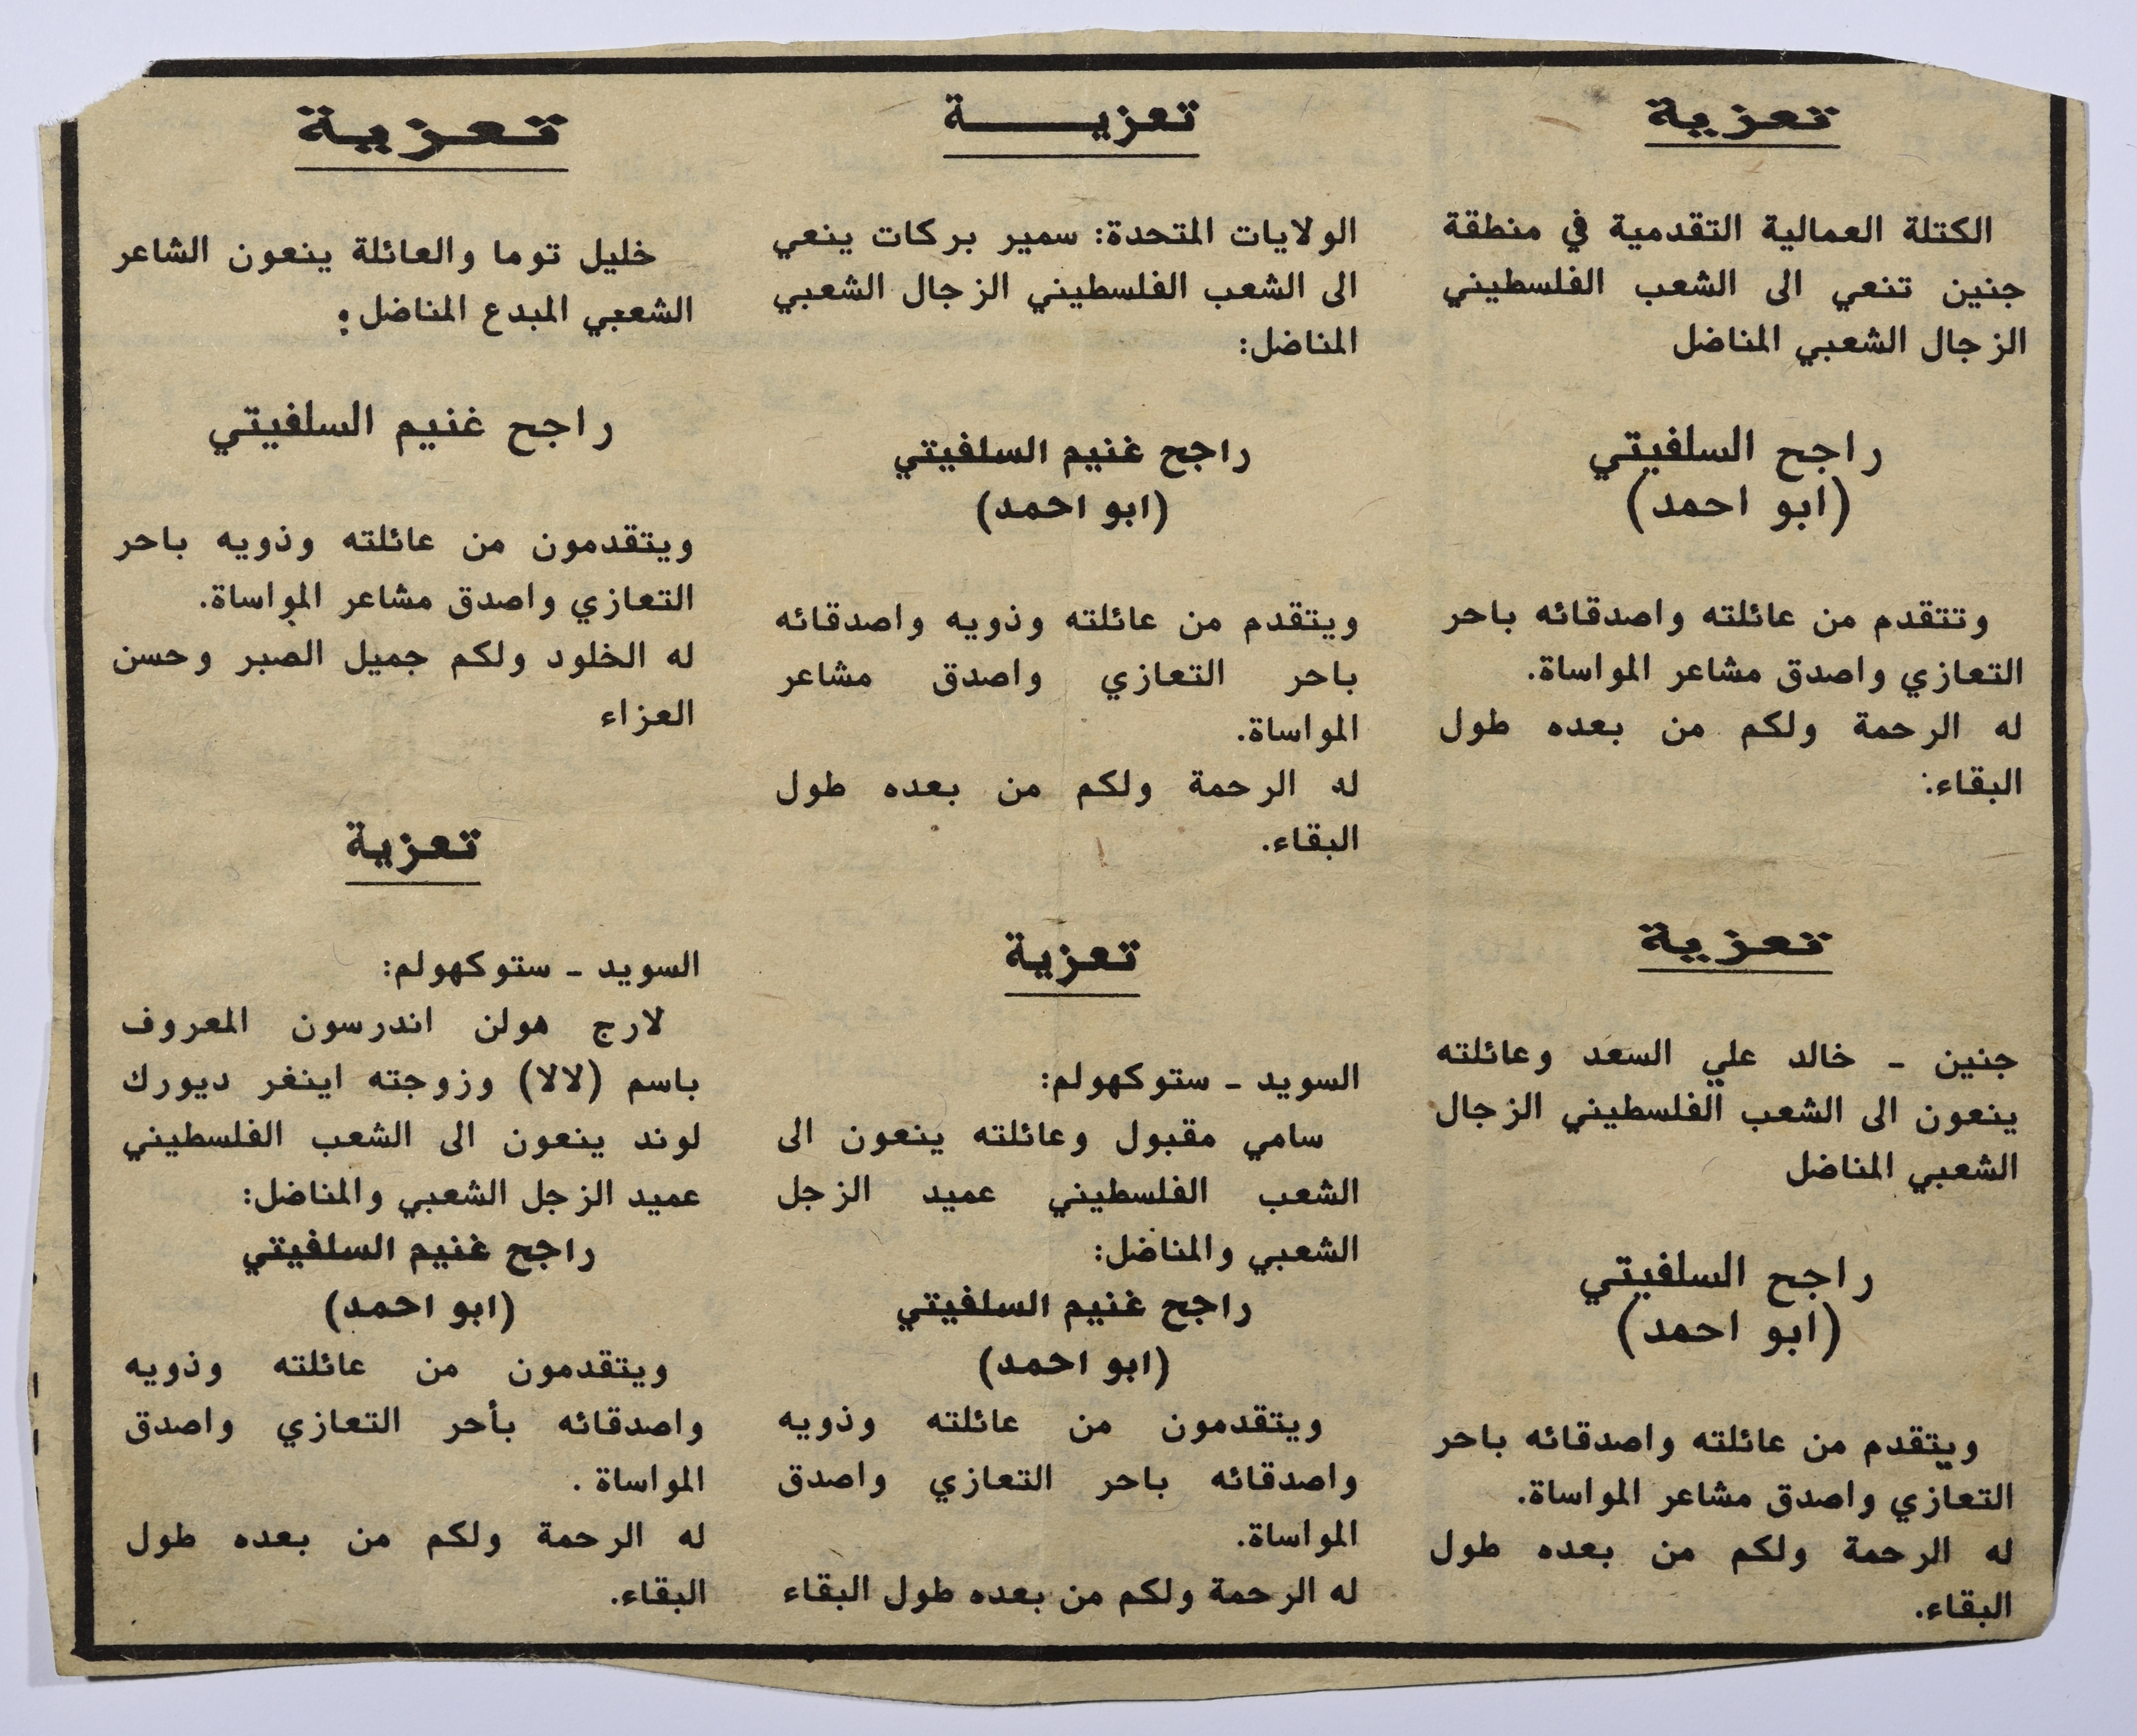 تعزية
الكتلة العمالية التقدمية في منطقة
جنين تنعي الى الشعب الفلسطيني
الزجال الشعبي المناضل
راجح السلفيتي
(ابو احمد)
وتتقدم من عائلته واصدقائه باحر
التعازي واصدق مشاعر المواساة.
له الرحمة ولكم من بعده طول
البقاء:
تعزية
جنين - خالد علي السعد وعائلته
ينعون الى الشعب الفلسطيني الزجال
الشعبي المناضل
راجح السلفيتي
(ابو احمد)
ويتقدم من عائلته واصدقائه باحر
التعازي واصدق مشاعر المواساة.
له الرحمة ولكم من بعده طول
البقاء.
تعزيـــة
الولايات المتحدة: سمير بركات ينعي
الى الشعب الفلسطيني الزجال الشعبي
المناضل:
راجح غنيم السلفيتي
(ابو احمد)
ويتقدم من عائلته وذويه واصدقائه
باحر التعازي واصدق مشاعر
المواساة.
له الرحمة ولكم من بعده طول
البقاء.
تعزية
السويد - ستوكهولم:
سامي مقبول وعائلته ينعون الى
الشعب الفلسطيني عميد الزجل
الشعبي والمناضل:
راجح غنيم السلفيتي
(ابو احمد)
ويتقدمون من عائلته وذويه
واصدقائه باحر التعازي واصدق
المواساة.
له الرحمة ولكم من بعده طول البقاء
تعزية
خليل توما والعائلة ينعون الشاعر
الشعبي المبدع المناضل:
راجح غنيم السلفيتي
ويتقدمون من عائلته وذويه باحر
التعازي واصدق مشاعر المواساة.
له الخلود ولكم جميل الصبر وحسن
العزاء
تعزية
السويد - ستوكهولم:
لارج هولن اندرسون المعروف
باسم (لالا) وزوجته اينغر ديورك
لوند ينعون الى الشعب الفلسطيني
عميد الزجل الشعبي والمناضل:
راجح غنيم السلفيتي
(ابو احمد)
ويتقدمون من عائلته وذويه
واصدقائه بأحر التعازي واصدق
المواساة .
له الرحمة ولكم من بعده طول
البقاء.